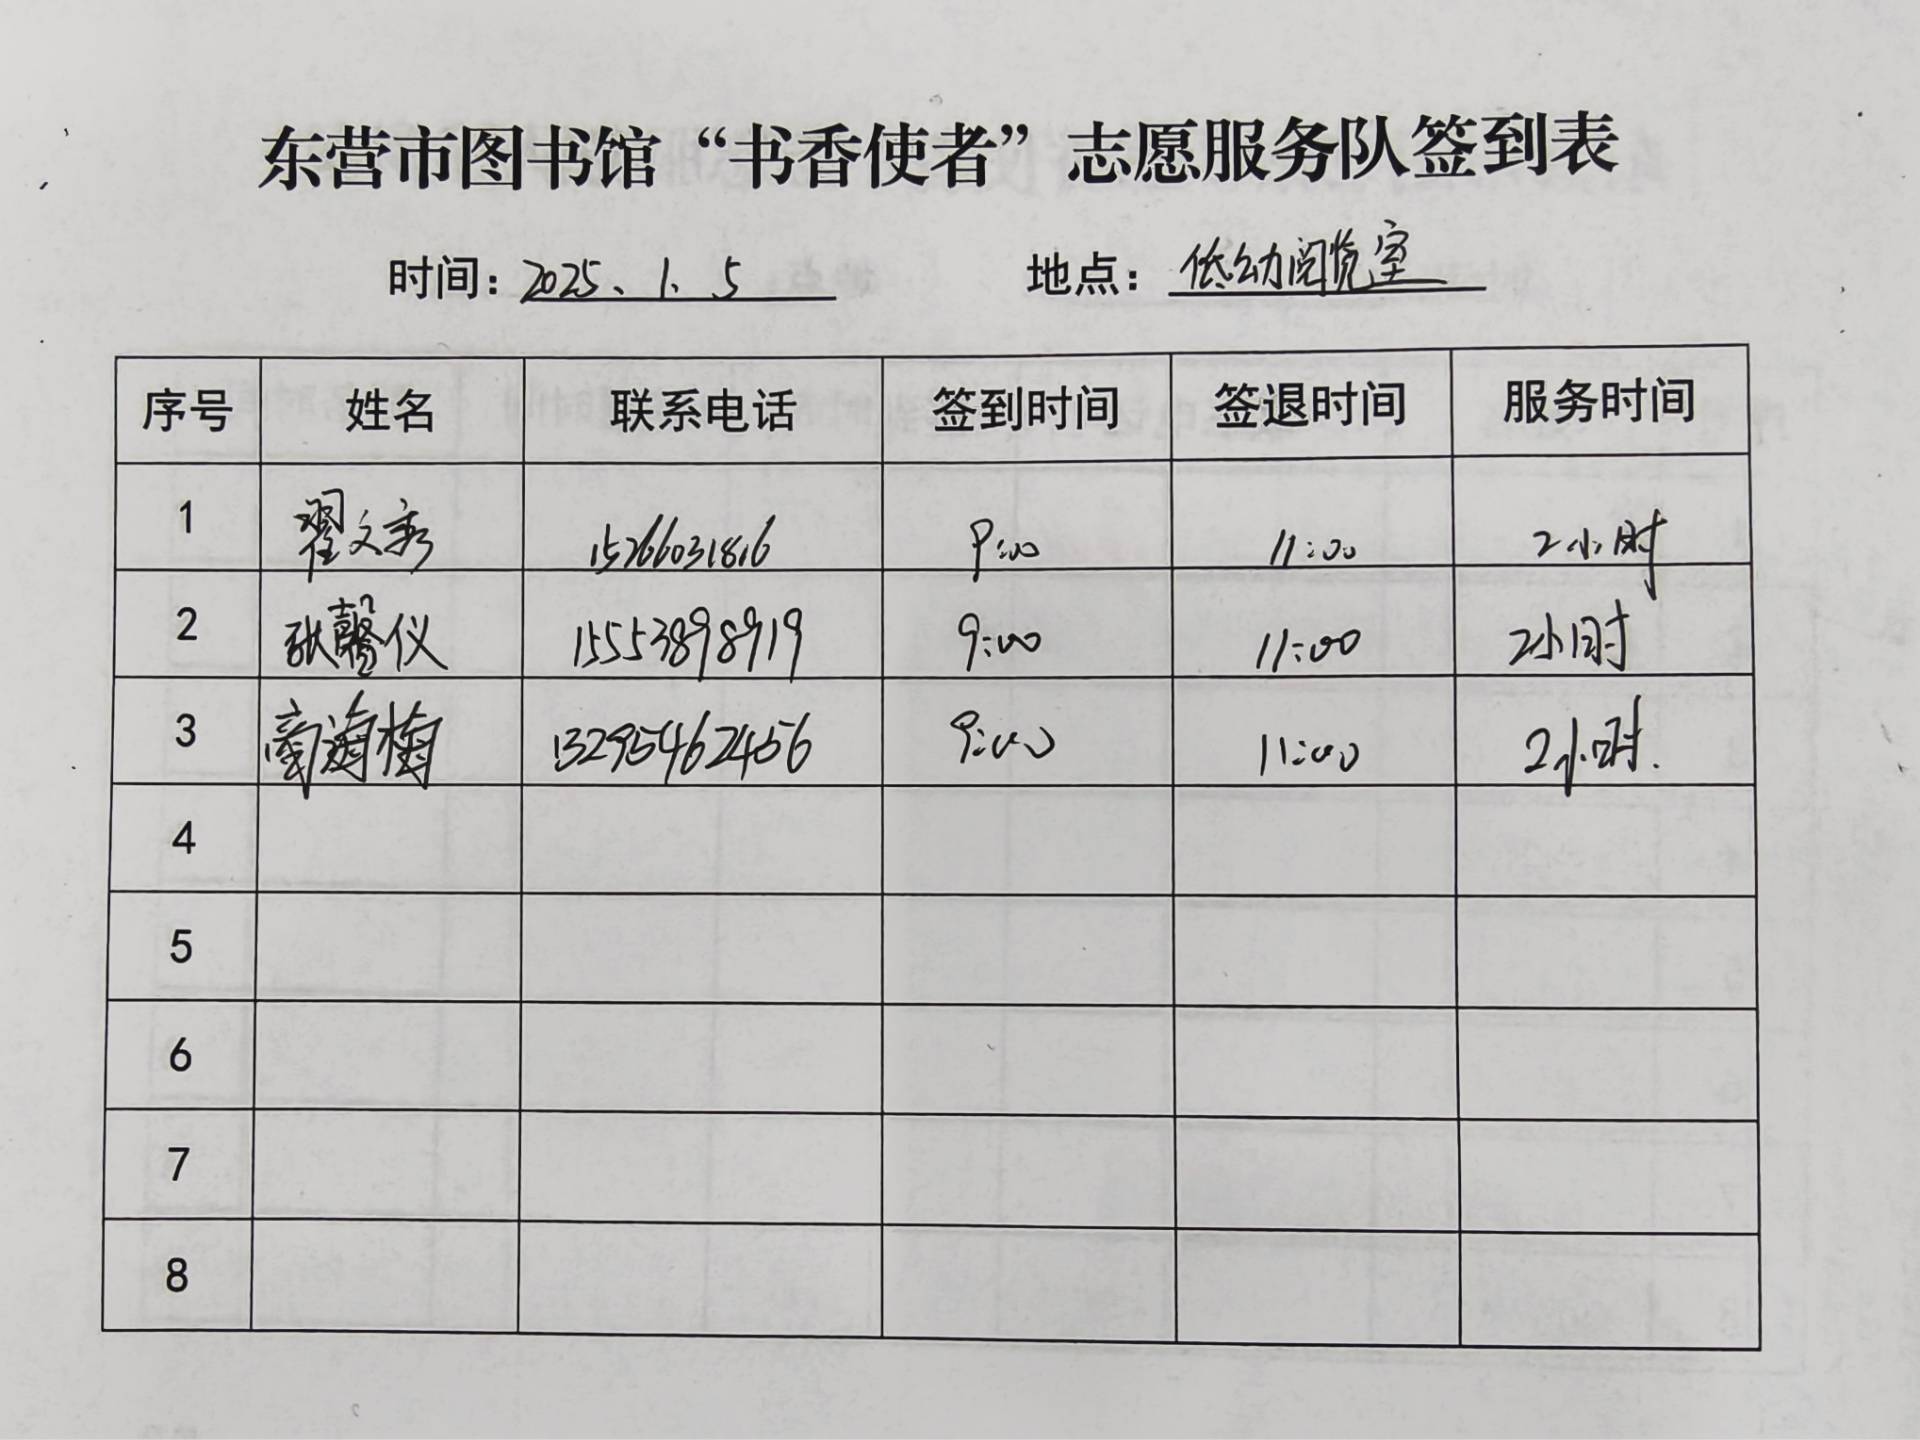 东营市图书馆“书香使者”志愿服务队签到表
时间：2025、1、5 地点：低幼阅览室
序号 姓名 联系电话 签到时间 签退时间 服务时间
1 翟文秀 15266031816 9:00 11:00 2小时
2 张馨仪 15553898919 9:00 11:00 2小时
3 13295462456 9:00 11:00 2小时.
4
5
6
7
8